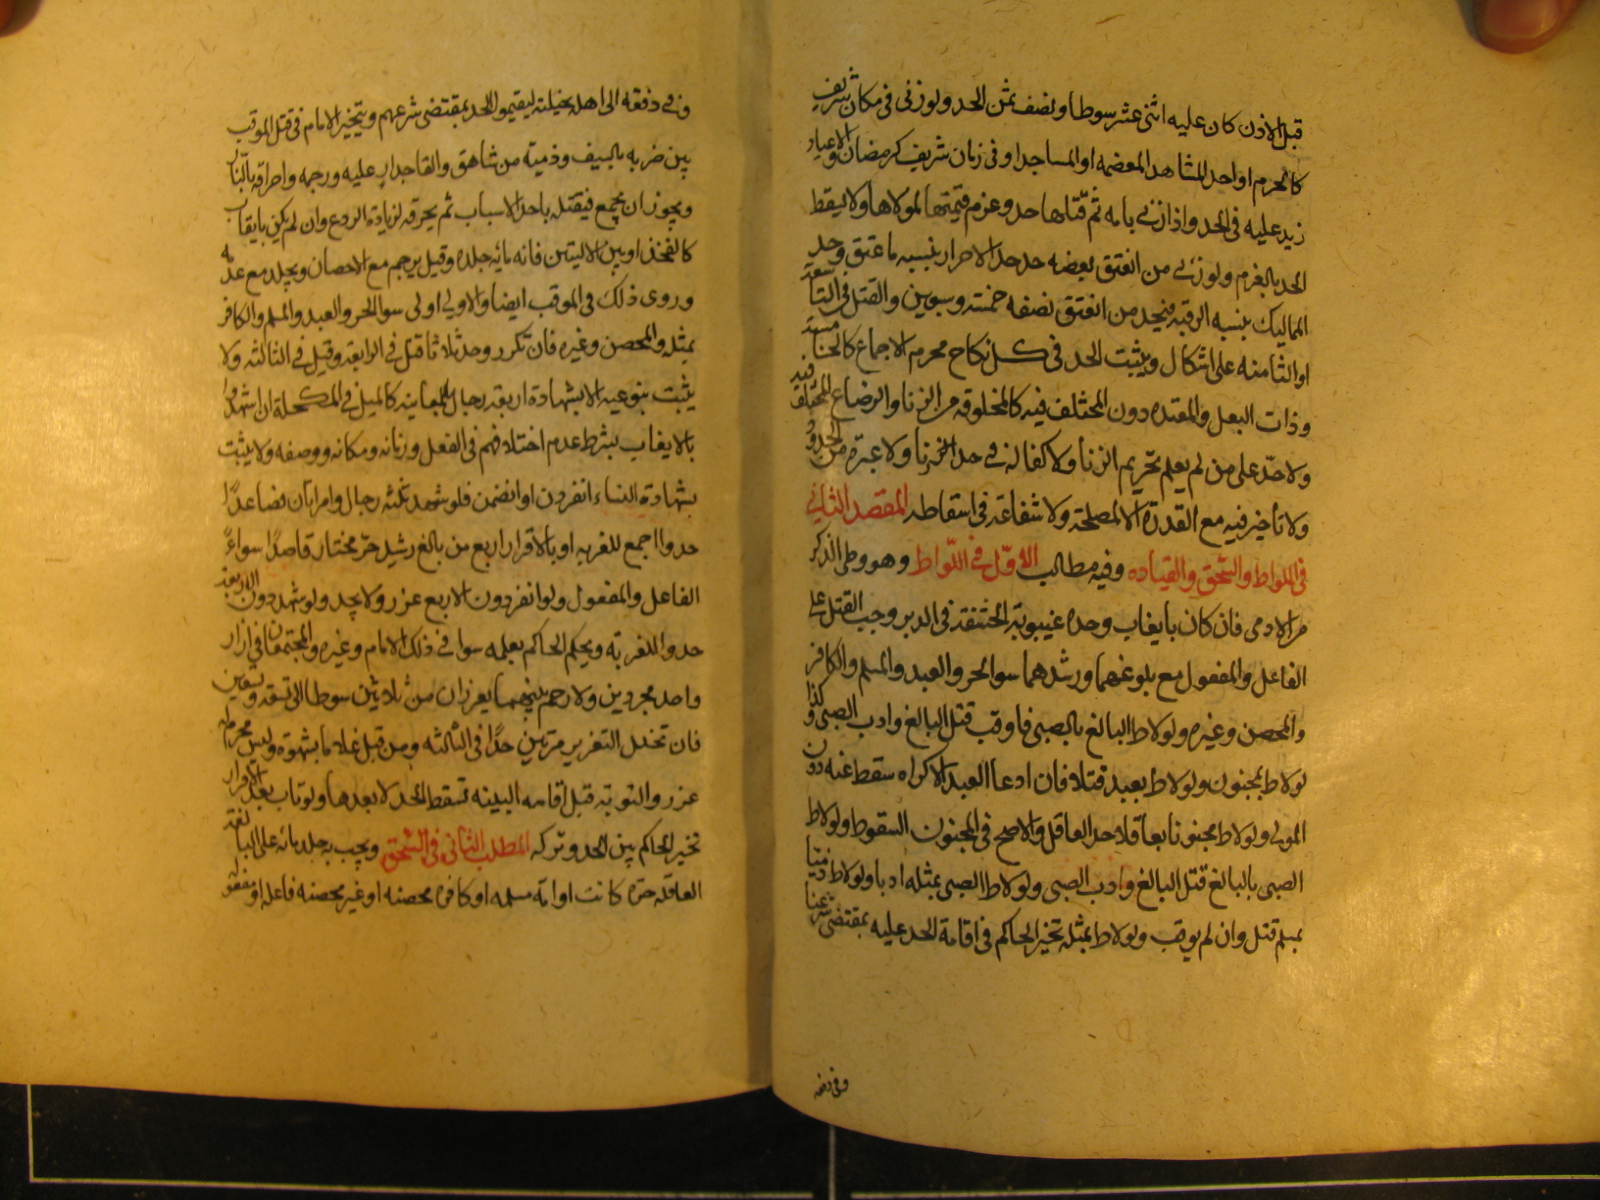 قبل الاذن كان عليه اثنى عشر سوطا ونصف ثمن الحد ولو زنى فى مكان شريف
كالحرم او احد المشاهد المعضمه او المساجد او فى زمان شريف كرمضان والاعياد
زيد عليه فى الحد واذا زنى بامه ثم قتلها حد وغرم قيمتها لمولاها ولا يسقط
الحد بالغرم ولو زنى من انعتق بعضه حد حد الاحرار بنسبه ما عتق وحد
المماليك بنسبه الرقيه فيحد من انعتق نصفه خمسه وسبعين والقتل فى التاسعه
او الثامنه على اشكال ويثبت الحد فى كل نكاح محرم الاجماع كالخامسه
وذات البعل والمعتده دون المختلف فيه كالمخلوقه من الزنا والرضاع المختلف فيه
ولا حد على من لم يعلم تحريم الزنا ولا كفاله فى حد الزنا ولا غيره من الحدود
ولا تاخير فيه مع القدرة الا لمصلحة ولا شفاعة فى اسقاطه المقصد الثانى
فى اللواط والسحق والقياده وفيه مطالب الاول فى اللواط وهو وطى الذكر
من الادمى فان كان بايغاب وحده غيبوبة الحشفة فى الدبر وجب القتل على
الفاعل والمفعول مع بلوغهما ورشدهما سوا الحر والعبد والمسلم والكافر
والمحصن وغيره ولو لاط البالغ بالصبى فاوقب قتل البالغ وادب الصبى وكذا
لو لاط بمجنون ولو لاط بعبد قتلا فان ادعا العبد الاكراه سقط عنه دون
المولى ولو لاط مجنون بعاقل حد العاقل والاصح فى المجنون السقوط ولو لاط
الصبى بالبالغ قتل البالغ وادب الصبى ولو لاط الصبى بمثله ادبا ولو لاط ذميا
بمسلم قتل وان لم يوقب ولو لاط بمثله تخير الحاكم فى اقامة الحد عليه بمقتضى شرعنا
وفى دفعه
وفى دفعه الى اهل نحلته ليقيموا الحد بمقتضى شرعهم ويتخير الامام فى قتل الموقب
بين ضربه بالسيف ورميه من شاهق والقا جدار عليه ورجمه واحراقه بالنار
ويجوز ان يجمع فيقتله باحد الاسباب ثم يحرقه لزيادة الردع وان لم يكن بايقاب
كالفخذ او بين الاليتين فانه مائه جلده وقيل يرجم مع الاحصان ويجلد مع عدمه
وروى ذلك فى الموقب ايضا والاول اولى سوا الحر والعبد والمسلم والكافر
بمثله والمحصن وغيره فان تكرر وحد ثلاثا قتل فى الرابعه وقيل فى الثالثه ولا
يثبت بنوعيه الا بشهادة اربعه رجال بالمعاينه كالميل فى المكحلة ان شهدوا
بالايغاب بشرط عدم اختلافهم فى الفعل وزمانه ومكانه ووصفه ولا يثبت
بشهادة النساء انفردن او انضممن فلو شهد ثلثه رجال وامراتان فصاعدًا
حدوا اجمع للفريه او بالاقرار اربع من بالغ رشيد حر مختار قاصدًا سواءً
الفاعل والمفعول ولو انفرد دون الاربع عزر ولا يحد ولو شهد دون الاربعه
حدوا للفريه ويحكم الحاكم بعلمه سوا فى ذلك الامام وغيره والمجتمعان فى ازار
واحد مجردين ولا رحم بينهما يعزران من ثلاثين سوطا الى تسعه وتسعين
فان تخلل التعزير مرتين حدًا فى الثالثه ومن قبل غلاما بشهوه وليس محرم له
عزر والتوبة قبل اقامه البينه تسقط الحد لا بعدها ولو تاب بعد الاقرار
تخير الحاكم بين الحد وتركه المطلب الثانى فى السحق ويجب جلد مائه على البالغه
العاقله حره كانت او امة مسلمه او كافره محصنه او غير محصنه فاعله او مفعوله